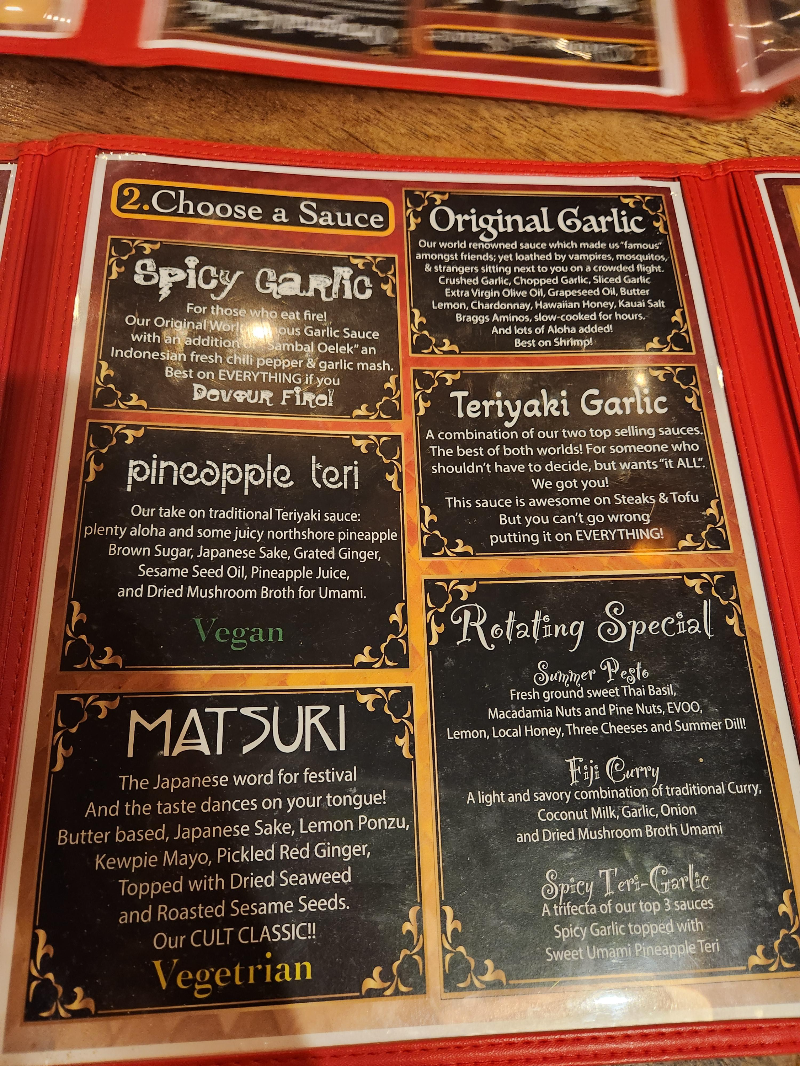 2. Choose a Sauce
Spicy Garlic
For those who eat fire!
Our Original World ous Garlic Sauce
with an addition "Sambal Oelek" an
Indonesian fresh chili pepper & garlic mash.
Best on EVERYTHING if you
Devour Fire!
pineapple teri
Our take on traditional Teriyaki sauce:
plenty aloha and some juicy northshore pineapple
Brown Sugar, Japanese Sake, Grated Ginger,
Sesame Seed Oil, Pineapple Juice,
and Dried Mushroom Broth for Umami.
Vegan
MATSURI
The Japanese word for festival
And the taste dances on your tongue!
Butter based, Japanese Sake, Lemon Ponzu,
Kewpie Mayo, Pickled Red Ginger,
Topped with Dried Seaweed
and Roasted Sesame Seeds.
Our CULT CLASSIC!!
Vegetrian
Original Garlic
Our world renowned sauce which made us "famous"
amongst friends; yet loathed by vampires, mosquitos,
& strangers sitting next to you on a crowded flight.
Crushed Garlic, Chopped Garlic, Sliced Garlic
Extra Virgin Olive Oil, Grapeseed Oil, Butter
Lemon, Chardonnay, Hawaiian Honey, Kauai Salt
Braggs Aminos, slow-cooked for hours.
And lots of Aloha added!
Best on Shrimp!
Teriyaki Garlic
A combination of our two top selling sauces.
The best of both worlds! For someone who
shouldn't have to decide, but wants "it ALL".
We got you!
This sauce is awesome on Steaks & Tofu
But you can't go wrong
putting it on EVERYTHING!
Rotating Special
Summer Pesto
Fresh ground sweet Thai Basil,
Macadamia Nuts and Pine Nuts, EVOO,
Lemon, Local Honey, Three Cheeses and Summer Dill!
Fiji Curry
A light and savory combination of traditional Curry,
Coconut Milk, Garlic, Onion
and Dried Mushroom Broth Umami
Spicy Teri-Garlic
A trifecta of our top 3 sauces
Spicy Garlic topped with
Sweet Umami Pineapple Teri